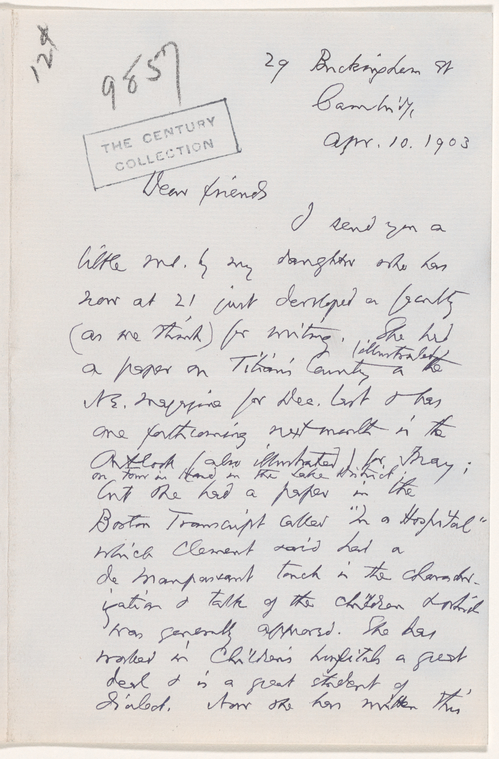 124
9857
29 Buckingham St
Cambridge,
Apr. 10. 1903
THE CENTURY
COLLECTION
Dear friends
I send you a
little ms. by my daughter who has
now at 21 just developed a faculty
(as we think) for writing. She had
a paper on Titian's Country (illustrated) in the
N.E. Magazine for Dec. last & has
one forthcoming next month in the
Outlook (also illustrated) for May;
on Tour in Hand in the Lake District
but she had a paper in the
Boston Transcript called "In a Hospital"
which Clement said had a
de Maupassant touch in the character-
ization & talk of the children & which
was generally approved. She has
worked in Children's hospitals a great
deal & is a great student of
dialect. Now she has written this